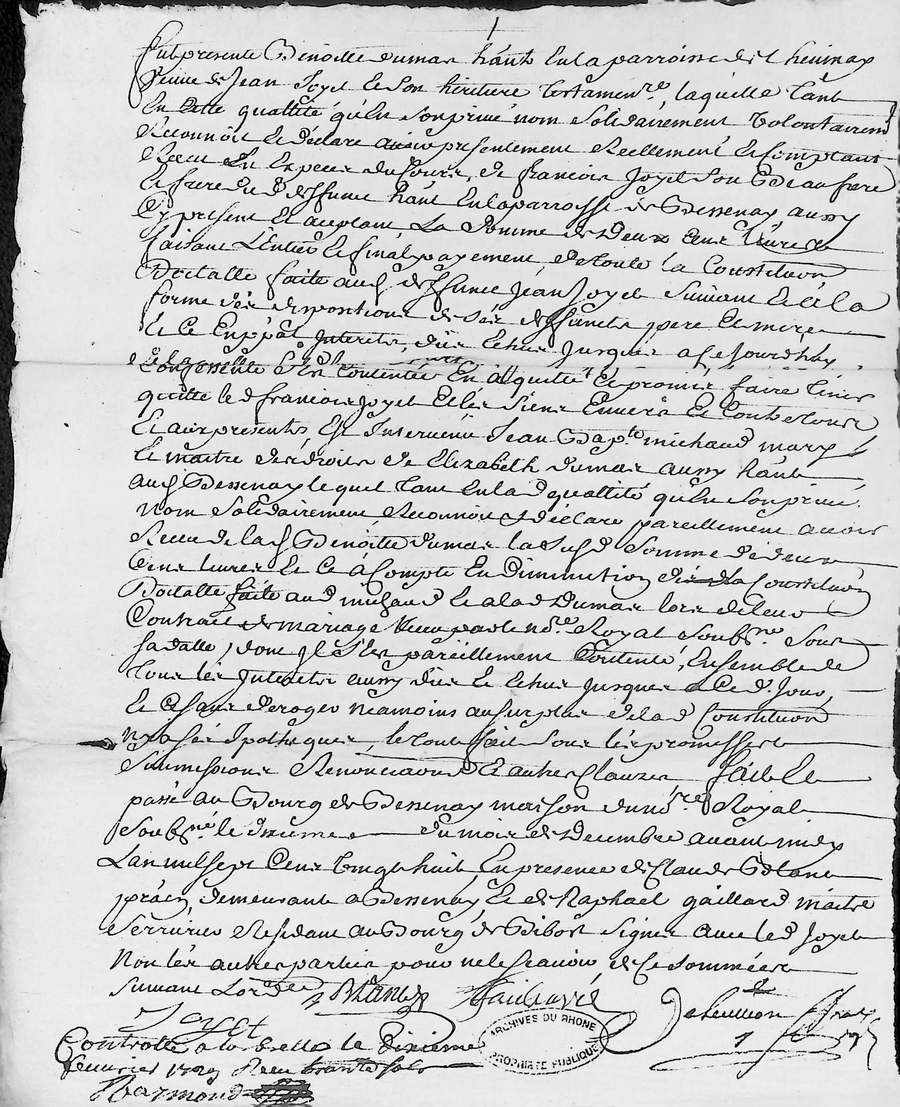 fut presente Benoitte dumas habt en la parroisse de
veuve de Jean Joyet et son heritiere testament.re, laquelle tant
en cette quallité qu'en son privé nom solidairement volontairemt
reconnoit et declare avoir presentement reellement et comptant
receu en especes du cours, de francois Joyet son beaufrere
et frere du d deffunt habt en la parroisse de Bessenay aussy
cy present et acceptant, la somme de deux cens livres
faisant l'entier et final payement, de toute la constituon
dotalle faite aud. deffunct Jean Joyet suivant et a la
forme des dispositions de ses deffuncts pere et mere
et ce en ppal interets, dus et echus jusques a ce jourdhuy
contente en acquitte et promis faire tenir
quitte led francois Joyet et les siens envers et contre tous
et aux presentes, est intervenu Jean Bap.te michaud mary
et maitre des droits de Elizabeth dumas aussy habt
aud Bessenay lequel tant en lad quallité qu'en son privé
nom solidairement reconnoit et declare pareillement avoir
receu de lad Benoitte dumas la susd somme de deux
cens livres et ce a compte en diminution de la constituon
dotalle faite aud michaud et a lad dumas lors de leur
contrat de mariage receu par le no.re Royal soub.né sous
sa datte, dont il s'est pareillement contenté, ensemble de
tous les interets aussy dus et echus jusques a ce d. jour,
et ce sans deroger neamoins au surplus de lad constituon
ny a ses ipotheques, le tout fait sous les promesses
submissions renonciaons et autres clauzes fait et
passé au Bourg de Bessenay maison du no.re Royal
soub.né le dixieme du mois de decembre avant midy
l'an mil sept cens vingt huit en presence de Claude Blanc
pratn demeurant a Bessenay et de Raphael gaillard maitre
serrurier residant au Bourg de Bibost signes avec led Joyet
non les autres parties pour ne le scavoir, de ce sommées
suivant l'ord.e
Blanc
Joyet
Controllé a la brelle le dixieme
fevrier 1729 Receu trente sols
Raymond
ARCHIVES DU RHONE
PROPRIETE PUBLIQUE